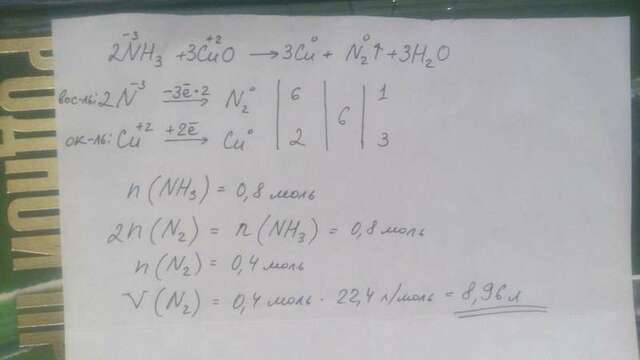 2N⁻³H₃ + 3Cu⁺²O → 3Cu⁰ + N₂⁰↑ + 3H₂O
вос-ль: 2N⁻³ –3ē·2 → N₂⁰ | 6 | 6 | 1
ок-ль: Cu⁺² +2ē → Cu⁰ | 2 | | 3
n(NH₃) = 0,8 моль
2n(N₂) = n(NH₃) = 0,8 моль
n(N₂) = 0,4 моль
V(N₂) = 0,4 моль · 22,4 л/моль = 8,96 л